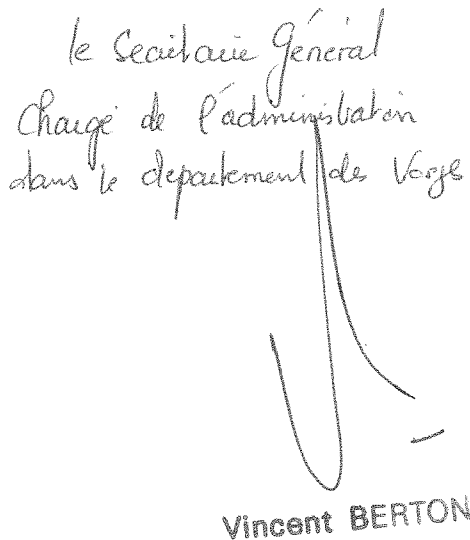 le Secrétaire Général
Chargé de l'administration
dans le département des Vosges
Vincent BERTON